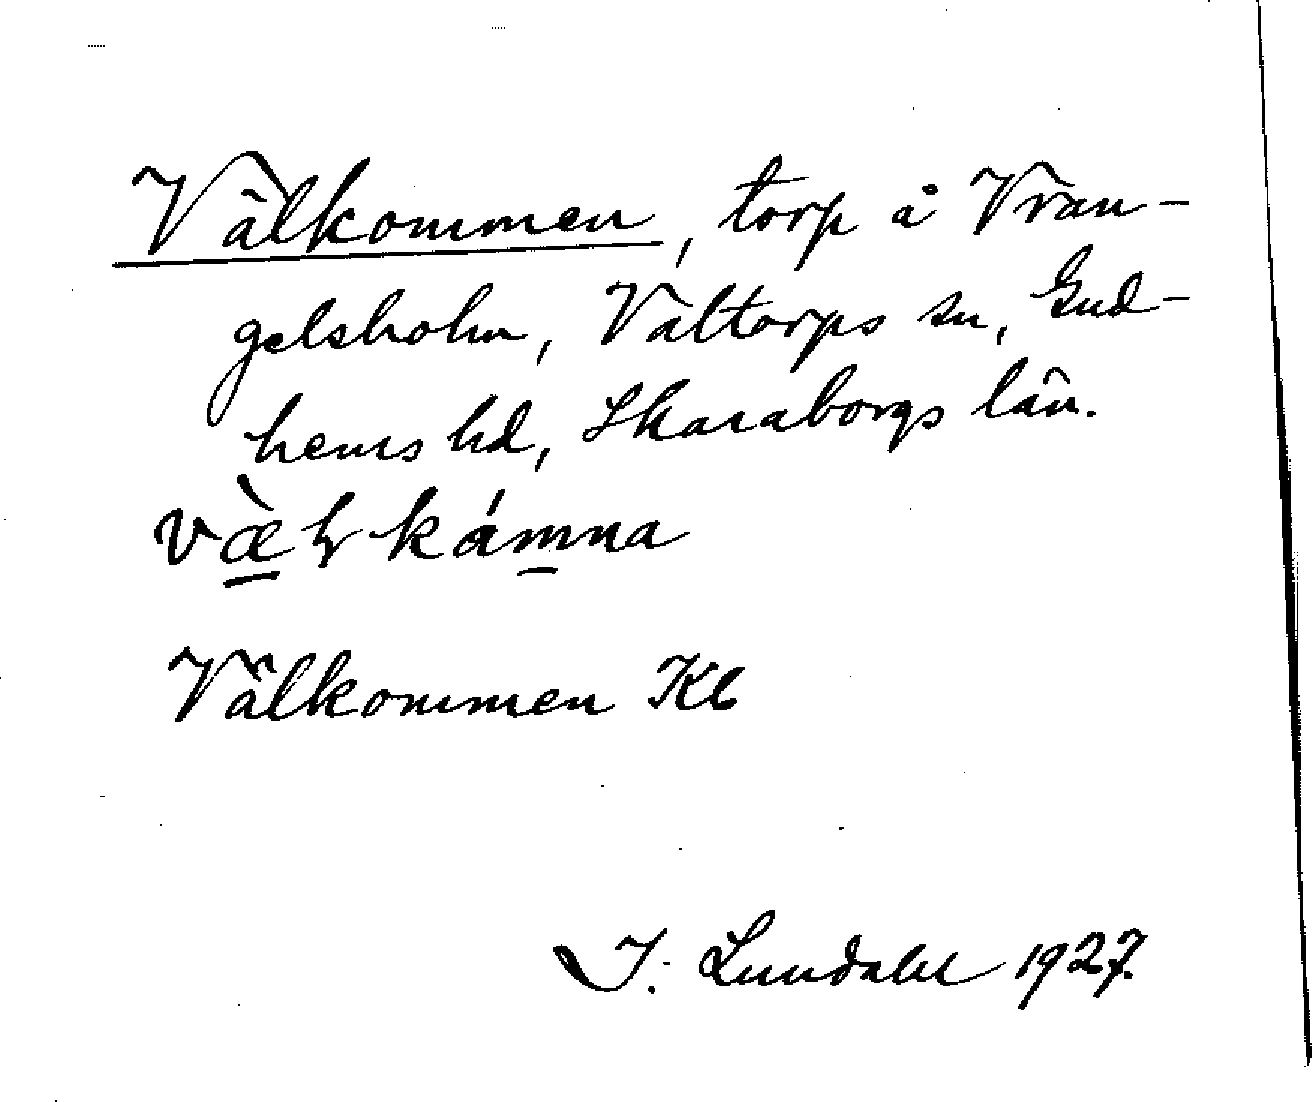 Välkommen, torp å Vran-
gelsholm, Valtorps sn, Gud-
hems hd, Skaraborgs län.
væ̀ḻkámna
Välkommen Kb
I. Lundahl 1927.